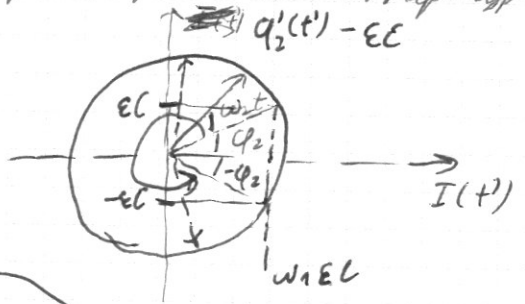 q₂'(t') - εC
εC
ω₂t
φ₂
-φ₂
-εC
I(t')
ω₁εC